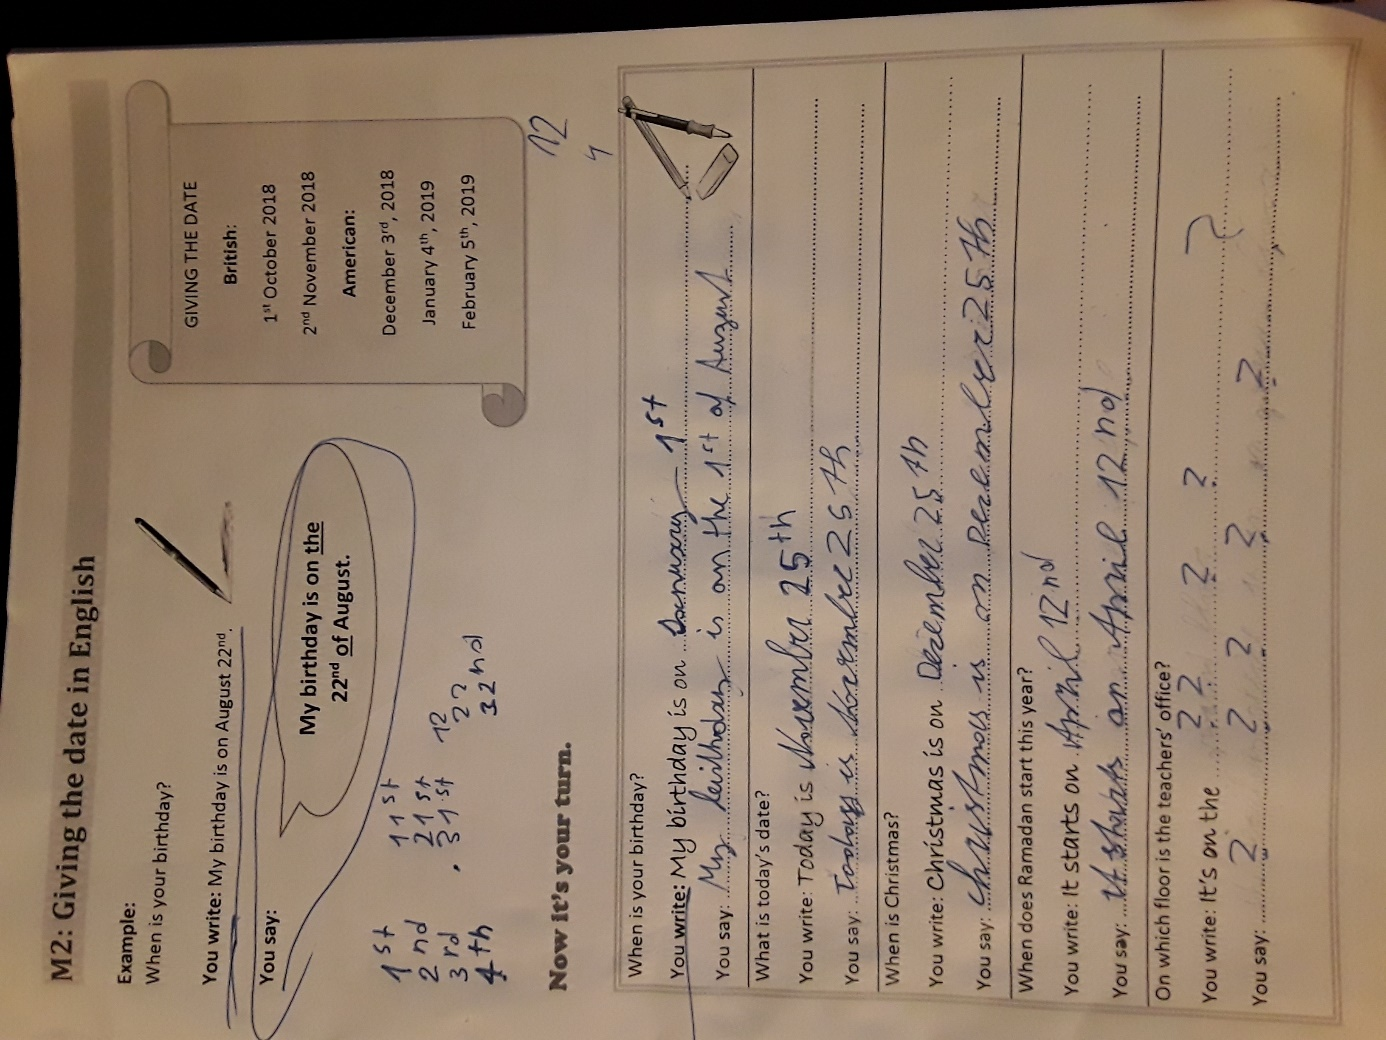 M2: Giving the date in English
Example:
When is your birthday?
You write: My birthday is on August 22nd.
You say:
My birthday is on the
22nd of August.
GIVING THE DATE
British:
1st October 2018
2nd November 2018
American:
December 3rd, 2018
January 4th, 2019
February 5th, 2019
1st 11st 12
2nd 21st 22
3rd . 31st 32nd
4th
12
4
Now it's your turn.
When is your birthday?
You write: My birthday is on January 1st
You say: My birthday is on the 1st of August
What is today's date?
You write: Today is November 25th
You say: Today is November 25th
When is Christmas?
You write: Christmas is on Dezember 25th
You say: christmas is on Dezember 25th
When does Ramadan start this year?
You write: It starts on April 12nd
You say: It starts on April 12nd
On which floor is the teachers' office?
You write: It's on the 2 2 2 2 ?
You say: 2 2 2 2 2